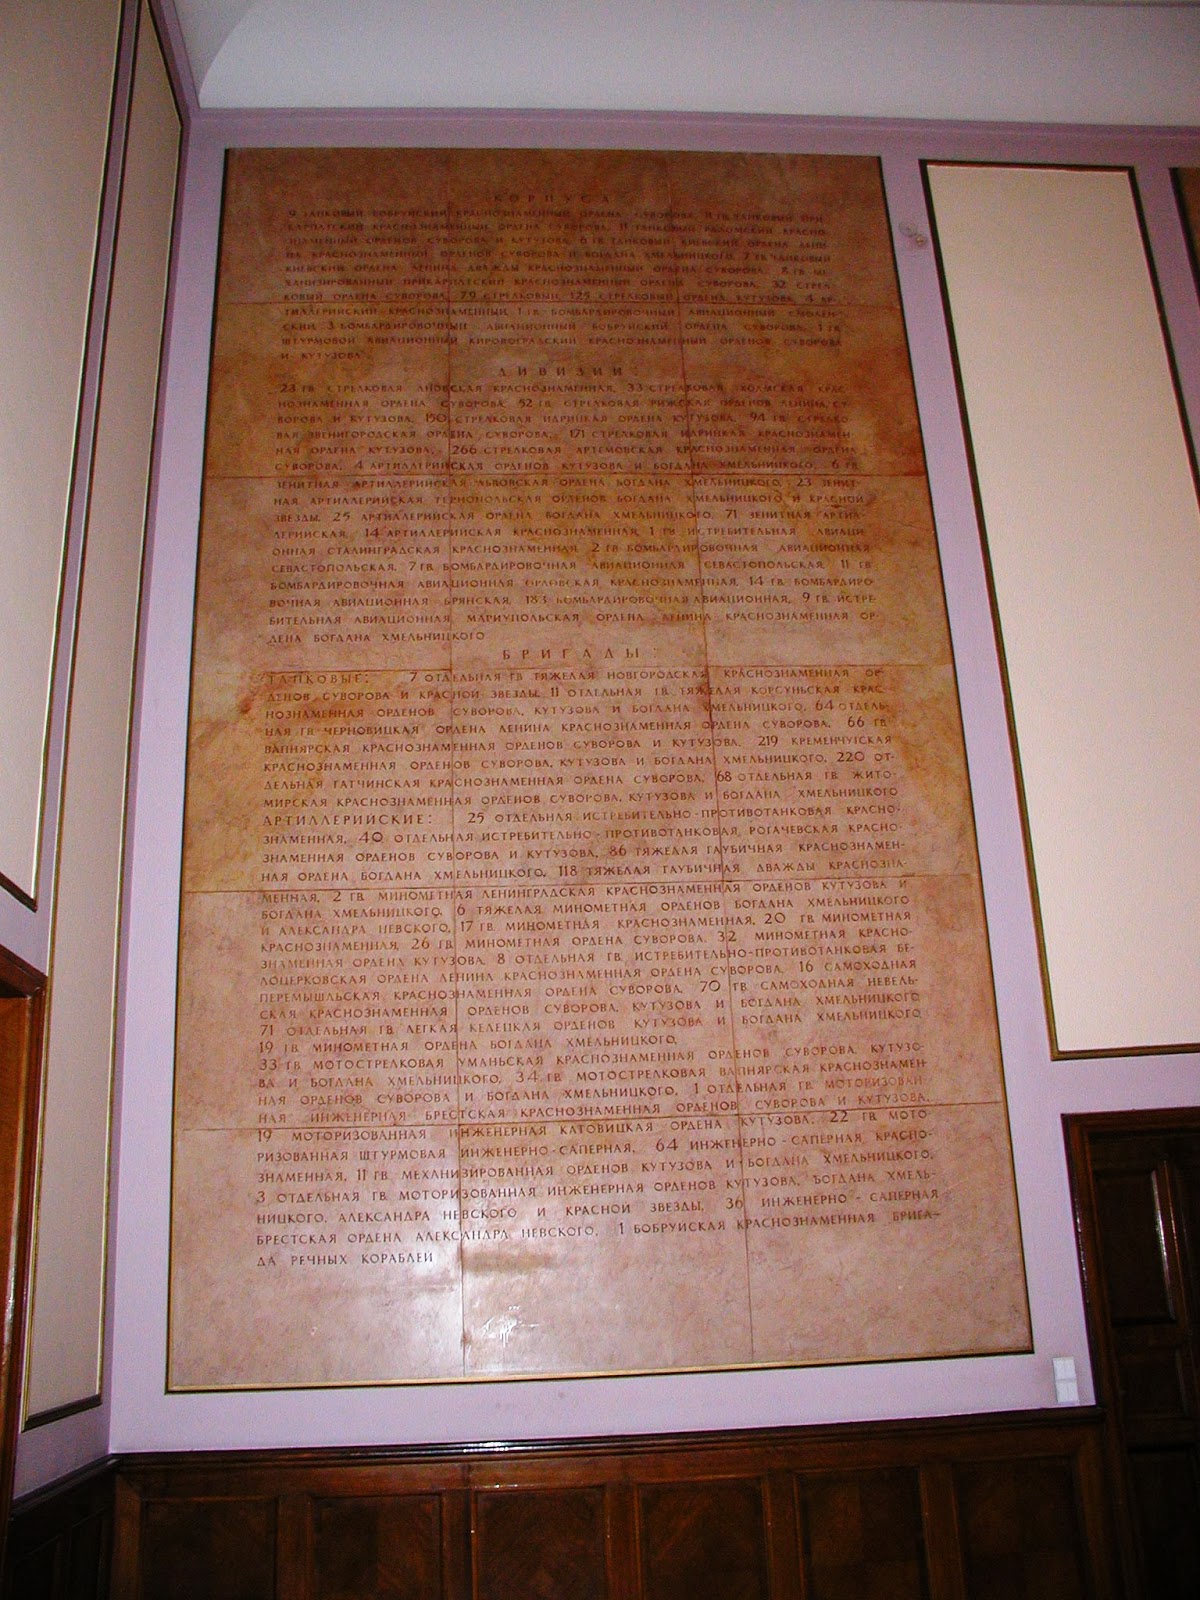 КОРПУСА
9 ТАНКОВЫЙ БОБРУЙСКИЙ КРАСНОЗНАМЕННЫЙ ОРДЕНА СУВОРОВА, 11 ГВ ТАНКОВЫЙ ПРИ-
КАРПАТСКИЙ КРАСНОЗНАМЕННЫЙ ОРДЕНА СУВОРОВА, 11 ТАНКОВЫЙ РАДОМСКИЙ КРАСНО-
ЗНАМЕННЫЙ ОРДЕНОВ СУВОРОВА И КУТУЗОВА, 6 ГВ ТАНКОВЫЙ КИЕВСКИЙ ОРДЕНА ЛЕНИ-
НА КРАСНОЗНАМЕННЫЙ ОРДЕНОВ СУВОРОВА И БОГДАНА ХМЕЛЬНИЦКОГО, 7 ГВ ТАНКОВЫЙ
КИЕВСКИЙ ОРДЕНА ЛЕНИНА ДВАЖДЫ КРАСНОЗНАМЕННЫЙ ОРДЕНА СУВОРОВА, 8 ГВ МЕ-
ХАНИЗИРОВАННЫЙ ПРИКАРПАТСКИЙ КРАСНОЗНАМЕННЫЙ ОРДЕНА СУВОРОВА, 32 СТРЕЛ-
КОВЫЙ ОРДЕНА СУВОРОВА, 79 СТРЕЛКОВЫЙ, 125 СТРЕЛКОВЫЙ ОРДЕНА КУТУЗОВА, 4 АР-
ТИЛЛЕРИЙСКИЙ КРАСНОЗНАМЕННЫЙ, 1 ГВ БОМБАРДИРОВОЧНЫЙ АВИАЦИОННЫЙ СМОЛЕН-
СКИЙ, 3 БОМБАРДИРОВОЧНЫЙ АВИАЦИОННЫЙ БОБРУЙСКИЙ ОРДЕНА СУВОРОВА, 1 ГВ
ШТУРМОВОЙ АВИАЦИОННЫЙ КИРОВОГРАДСКИЙ КРАСНОЗНАМЕННЫЙ ОРДЕНОВ СУВОРОВА
И КУТУЗОВА
ДИВИЗИИ:
23 ГВ СТРЕЛКОВАЯ ДНОВСКАЯ КРАСНОЗНАМЕННАЯ, 33 СТРЕЛКОВАЯ ХОЛМСКАЯ КРАС-
НОЗНАМЕННАЯ ОРДЕНА СУВОРОВА, 52 ГВ СТРЕЛКОВАЯ РИЖСКАЯ ОРДЕНОВ ЛЕНИНА, СУ-
ВОРОВА И КУТУЗОВА, 150 СТРЕЛКОВАЯ ИДРИЦКАЯ ОРДЕНА КУТУЗОВА, 94 ГВ СТРЕЛКО-
ВАЯ ЗВЕНИГОРОДСКАЯ ОРДЕНА СУВОРОВА, 171 СТРЕЛКОВАЯ ИДРИЦКАЯ КРАСНОЗНАМЕН-
НАЯ ОРДЕНА КУТУЗОВА, 266 СТРЕЛКОВАЯ АРТЕМОВСКАЯ КРАСНОЗНАМЕННАЯ ОРДЕНА
СУВОРОВА, 4 АРТИЛЛЕРИЙСКАЯ ОРДЕНОВ КУТУЗОВА И БОГДАНА ХМЕЛЬНИЦКОГО, 6 ГВ
ЗЕНИТНАЯ АРТИЛЛЕРИЙСКАЯ ЛЬВОВСКАЯ ОРДЕНА БОГДАНА ХМЕЛЬНИЦКОГО, 23 ЗЕНИТ-
НАЯ АРТИЛЛЕРИЙСКАЯ ТЕРНОПОЛЬСКАЯ ОРДЕНОВ БОГДАНА ХМЕЛЬНИЦКОГО И КРАСНОЙ
ЗВЕЗДЫ, 25 АРТИЛЛЕРИЙСКАЯ ОРДЕНА БОГДАНА ХМЕЛЬНИЦКОГО, 71 ЗЕНИТНАЯ АРТИЛ-
ЛЕРИЙСКАЯ, 14 АРТИЛЛЕРИЙСКАЯ КРАСНОЗНАМЕННАЯ, 1 ГВ ИСТРЕБИТЕЛЬНАЯ АВИАЦИ-
ОННАЯ СТАЛИНГРАДСКАЯ КРАСНОЗНАМЕННАЯ, 2 ГВ БОМБАРДИРОВОЧНАЯ АВИАЦИОННАЯ
СЕВАСТОПОЛЬСКАЯ, 7 ГВ БОМБАРДИРОВОЧНАЯ АВИАЦИОННАЯ СЕВАСТОПОЛЬСКАЯ, 11 ГВ
БОМБАРДИРОВОЧНАЯ АВИАЦИОННАЯ ОРЛОВСКАЯ КРАСНОЗНАМЕННАЯ, 14 ГВ БОМБАРДИРО-
ВОЧНАЯ АВИАЦИОННАЯ БРЯНСКАЯ, 183 БОМБАРДИРОВОЧНАЯ АВИАЦИОННАЯ, 9 ГВ ИСТРЕ-
БИТЕЛЬНАЯ АВИАЦИОННАЯ МАРИУПОЛЬСКАЯ ОРДЕНА ЛЕНИНА КРАСНОЗНАМЕННАЯ ОР-
ДЕНА БОГДАНА ХМЕЛЬНИЦКОГО
БРИГАДЫ:
ТАНКОВЫЕ: 7 ОТДЕЛЬНАЯ ГВ ТЯЖЕЛАЯ НОВГОРОДСКАЯ КРАСНОЗНАМЕННАЯ ОР-
ДЕНОВ СУВОРОВА И КРАСНОЙ ЗВЕЗДЫ, 11 ОТДЕЛЬНАЯ ГВ ТЯЖЕЛАЯ КОРСУНЬСКАЯ КРАС-
НОЗНАМЕННАЯ ОРДЕНОВ СУВОРОВА, КУТУЗОВА И БОГДАНА ХМЕЛЬНИЦКОГО, 64 ОТДЕЛЬ-
НАЯ ГВ ЧЕРНОВИЦКАЯ ОРДЕНА ЛЕНИНА КРАСНОЗНАМЕННАЯ ОРДЕНА СУВОРОВА, 66 ГВ
ВАПНЯРСКАЯ КРАСНОЗНАМЕННАЯ ОРДЕНОВ СУВОРОВА И КУТУЗОВА, 219 КРЕМЕНЧУГСКАЯ
КРАСНОЗНАМЕННАЯ ОРДЕНОВ СУВОРОВА, КУТУЗОВА И БОГДАНА ХМЕЛЬНИЦКОГО, 220 ОТ-
ДЕЛЬНАЯ ГАТЧИНСКАЯ КРАСНОЗНАМЕННАЯ ОРДЕНА СУВОРОВА, 68 ОТДЕЛЬНАЯ ГВ ЖИТО-
МИРСКАЯ КРАСНОЗНАМЕННАЯ ОРДЕНОВ СУВОРОВА, КУТУЗОВА И БОГДАНА ХМЕЛЬНИЦКОГО
АРТИЛЛЕРИЙСКИЕ: 25 ОТДЕЛЬНАЯ ИСТРЕБИТЕЛЬНО-ПРОТИВОТАНКОВАЯ КРАСНО-
ЗНАМЕННАЯ, 40 ОТДЕЛЬНАЯ ИСТРЕБИТЕЛЬНО-ПРОТИВОТАНКОВАЯ, РОГАЧЕВСКАЯ КРАСНО-
ЗНАМЕННАЯ ОРДЕНОВ СУВОРОВА И КУТУЗОВА, 86 ТЯЖЕЛАЯ ГАУБИЧНАЯ КРАСНОЗНАМЕН-
НАЯ ОРДЕНА БОГДАНА ХМЕЛЬНИЦКОГО, 118 ТЯЖЕЛАЯ ГАУБИЧНАЯ ДВАЖДЫ КРАСНОЗНА-
МЕННАЯ, 2 ГВ МИНОМЕТНАЯ ЛЕНИНГРАДСКАЯ КРАСНОЗНАМЕННАЯ ОРДЕНОВ КУТУЗОВА И
БОГДАНА ХМЕЛЬНИЦКОГО, 6 ТЯЖЕЛАЯ МИНОМЕТНАЯ ОРДЕНОВ БОГДАНА ХМЕЛЬНИЦКОГО
И АЛЕКСАНДРА НЕВСКОГО, 17 ГВ МИНОМЕТНАЯ КРАСНОЗНАМЕННАЯ, 20 ГВ МИНОМЕТНАЯ
КРАСНОЗНАМЕННАЯ, 26 ГВ МИНОМЕТНАЯ ОРДЕНА СУВОРОВА, 32 МИНОМЕТНАЯ КРАСНО-
ЗНАМЕННАЯ ОРДЕНА КУТУЗОВА, 8 ОТДЕЛЬНАЯ ГВ ИСТРЕБИТЕЛЬНО-ПРОТИВОТАНКОВАЯ БЕ-
ЛОЦЕРКОВСКАЯ ОРДЕНА ЛЕНИНА КРАСНОЗНАМЕННАЯ ОРДЕНА СУВОРОВА, 16 САМОХОДНАЯ
ПЕРЕМЫШЛЬСКАЯ КРАСНОЗНАМЕННАЯ ОРДЕНА СУВОРОВА, 70 ГВ САМОХОДНАЯ НЕВЕЛЬ-
СКАЯ КРАСНОЗНАМЕННАЯ ОРДЕНОВ СУВОРОВА, КУТУЗОВА И БОГДАНА ХМЕЛЬНИЦКОГО
71 ОТДЕЛЬНАЯ ГВ ЛЕГКАЯ КЕЛЕЦКАЯ ОРДЕНОВ КУТУЗОВА И БОГДАНА ХМЕЛЬНИЦКОГО
19 ГВ МИНОМЕТНАЯ ОРДЕНА БОГДАНА ХМЕЛЬНИЦКОГО,
33 ГВ МОТОСТРЕЛКОВАЯ УМАНЬСКАЯ КРАСНОЗНАМЕННАЯ ОРДЕНОВ СУВОРОВА, КУТУЗО-
ВА И БОГДАНА ХМЕЛЬНИЦКОГО, 34 ГВ МОТОСТРЕЛКОВАЯ ВАПНЯРСКАЯ КРАСНОЗНАМЕН-
НАЯ ОРДЕНОВ СУВОРОВА И БОГДАНА ХМЕЛЬНИЦКОГО, 1 ОТДЕЛЬНАЯ ГВ МОТОРИЗОВАН-
НАЯ ИНЖЕНЕРНАЯ БРЕСТСКАЯ КРАСНОЗНАМЕННАЯ ОРДЕНОВ СУВОРОВА И КУТУЗОВА,
19 МОТОРИЗОВАННАЯ ИНЖЕНЕРНАЯ КАТОВИЦКАЯ ОРДЕНА КУТУЗОВА, 22 ГВ МОТО-
РИЗОВАННАЯ ШТУРМОВАЯ ИНЖЕНЕРНО-САПЕРНАЯ, 64 ИНЖЕНЕРНО-САПЕРНАЯ КРАСНО-
ЗНАМЕННАЯ, 11 ГВ МЕХАНИЗИРОВАННАЯ ОРДЕНОВ КУТУЗОВА И БОГДАНА ХМЕЛЬНИЦКОГО,
3 ОТДЕЛЬНАЯ ГВ МОТОРИЗОВАННАЯ ИНЖЕНЕРНАЯ ОРДЕНОВ КУТУЗОВА, БОГДАНА ХМЕЛЬ-
НИЦКОГО, АЛЕКСАНДРА НЕВСКОГО И КРАСНОЙ ЗВЕЗДЫ, 36 ИНЖЕНЕРНО-САПЕРНАЯ
БРЕСТСКАЯ ОРДЕНА АЛЕКСАНДРА НЕВСКОГО, 1 БОБРУЙСКАЯ КРАСНОЗНАМЕННАЯ БРИГА-
ДА РЕЧНЫХ КОРАБЛЕЙ